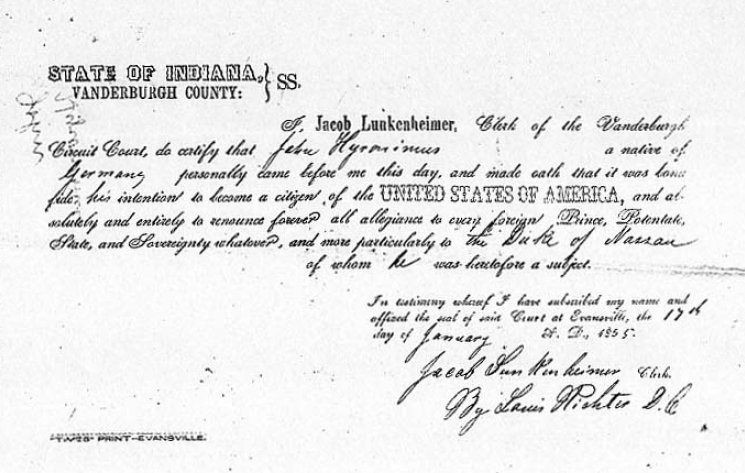 STATE OF INDIANA,
VANDERBURGH COUNTY: } SS.
I, Jacob Lunkenheimer, Clerk of the Vanderburgh
Circuit Court, do certify that John Hyronimus a native of
Germany personally came before me this day, and made oath that it was bona
fide, his intention to become a citizen of the UNITED STATES OF AMERICA, and ab-
solutely and entirely to renounce forever all allegiance to every foreign Prince, Potentate,
State, and Sovereignty whatever, and more particularly to the Duke of Nassau
of whom he was heretofore a subject.
In testimony whereof I have subscribed my name and
affixed the seal of said Court at Evansville, the 17th
day of January A. D., 1855.
Jacob Lunkenheimer Clerk.
By Louis Richter D. C
PRINT—EVANSVILLE.